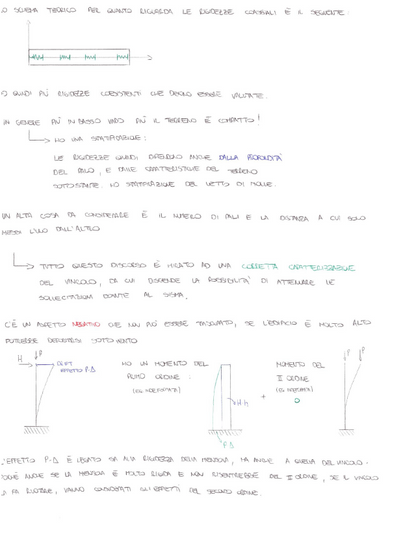 O SCHEMA TEORICO PER QUANTO RIGUARDA LE RIGIDEZZE COASSIALI È IL SEGUENTE:
QUINDI PIÙ RIGIDEZZE COESISTENTI CHE DEVONO ESSERE VALUTATE.
IN GENERE PIÙ IN BASSO VADO PIÙ IL TERRENO È COMPATTO!
HO UNA STRATIFICAZIONE:
LE RIGIDEZZE QUINDI DIPENDONO ANCHE DALLA PROFONDITÀ
DEL PALO, E DALLE CARATTERISTICHE DEL TERRENO
SOTTOSTANTE. LO STRATIFICAZIONE DEL LETTO DI MOLLE.
UN'ALTRA COSA DA CONSIDERARE È IL NUMERO DI PALI E LA DISTANZA A CUI SONO
MESSI L'UNO DALL'ALTRO
TUTTO QUESTO DISCORSO È LEGATO AD UNA CORRETTA CARATTERIZZAZIONE
DEL VINCOLO, DA CUI DIPENDE LA POSSIBILITÀ DI ATTENUARE LE
SOLLECITAZIONI DOVUTE AL SISMA.
C'È UN ASPETTO NEGATIVO CHE NON PUÒ ESSERE TRASCURATO, SE L'EDIFICIO È MOLTO ALTO
POTREBBE DEFORMARSI SOTTO VENTO
H P
EFFETTO P-Δ
HO UN MOMENTO DEL
PRIMO ORDINE:
H·h
+
P·Δ
MOMENTO DEL
II ORDINE
P P
L'EFFETTO P-Δ È LEGATO SIA ALLA RIGIDEZZA DELLA MENSOLA, MA ANCHE A QUELLA DEL VINCOLO.
ANCHE SE LA MENSOLA È MOLTO RIGIDA E NON RISENTIREBBE DEL II ORDINE, SE IL VINCOLO
FA RUOTARE, VANNO CONSIDERATI GLI EFFETTI DEL SECONDO ORDINE.